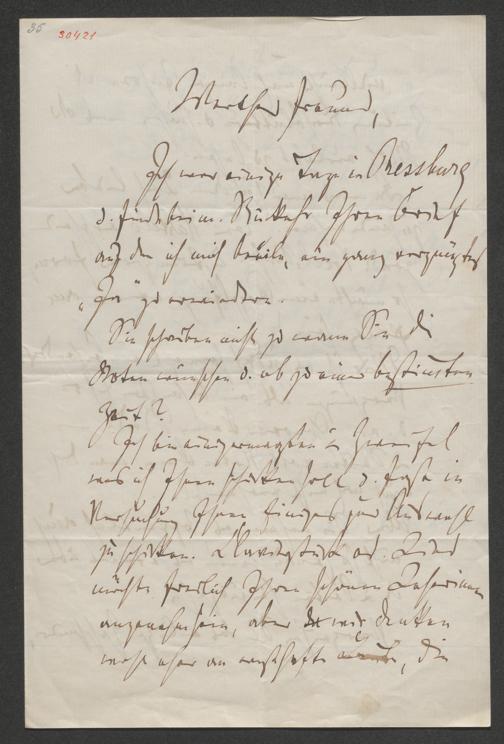 35
30421
Werther Freund,
Ich war einige Tage in Pressburg
u. finde bei m. Rückkehr Ihren Brief
auf den ich mich beeile, ein ganz vergnügtes
„Ja“ zu erwiedern.
Sie schreiben nicht zu wann Sie die
Noten wünschen u. ob zu einer bestimmten
Zeit?
Ich bin einigermaßen in Zweifel
was ich Ihnen schicken soll u. fast in
Versuchung Ihnen Einiges zur Auswahl
zu schicken. Clavierstück od. Lied
möchte freilich Ihren schönen Leserinnen
angenehm sein, aber wir denken
wohl eher an ernsthafte, die